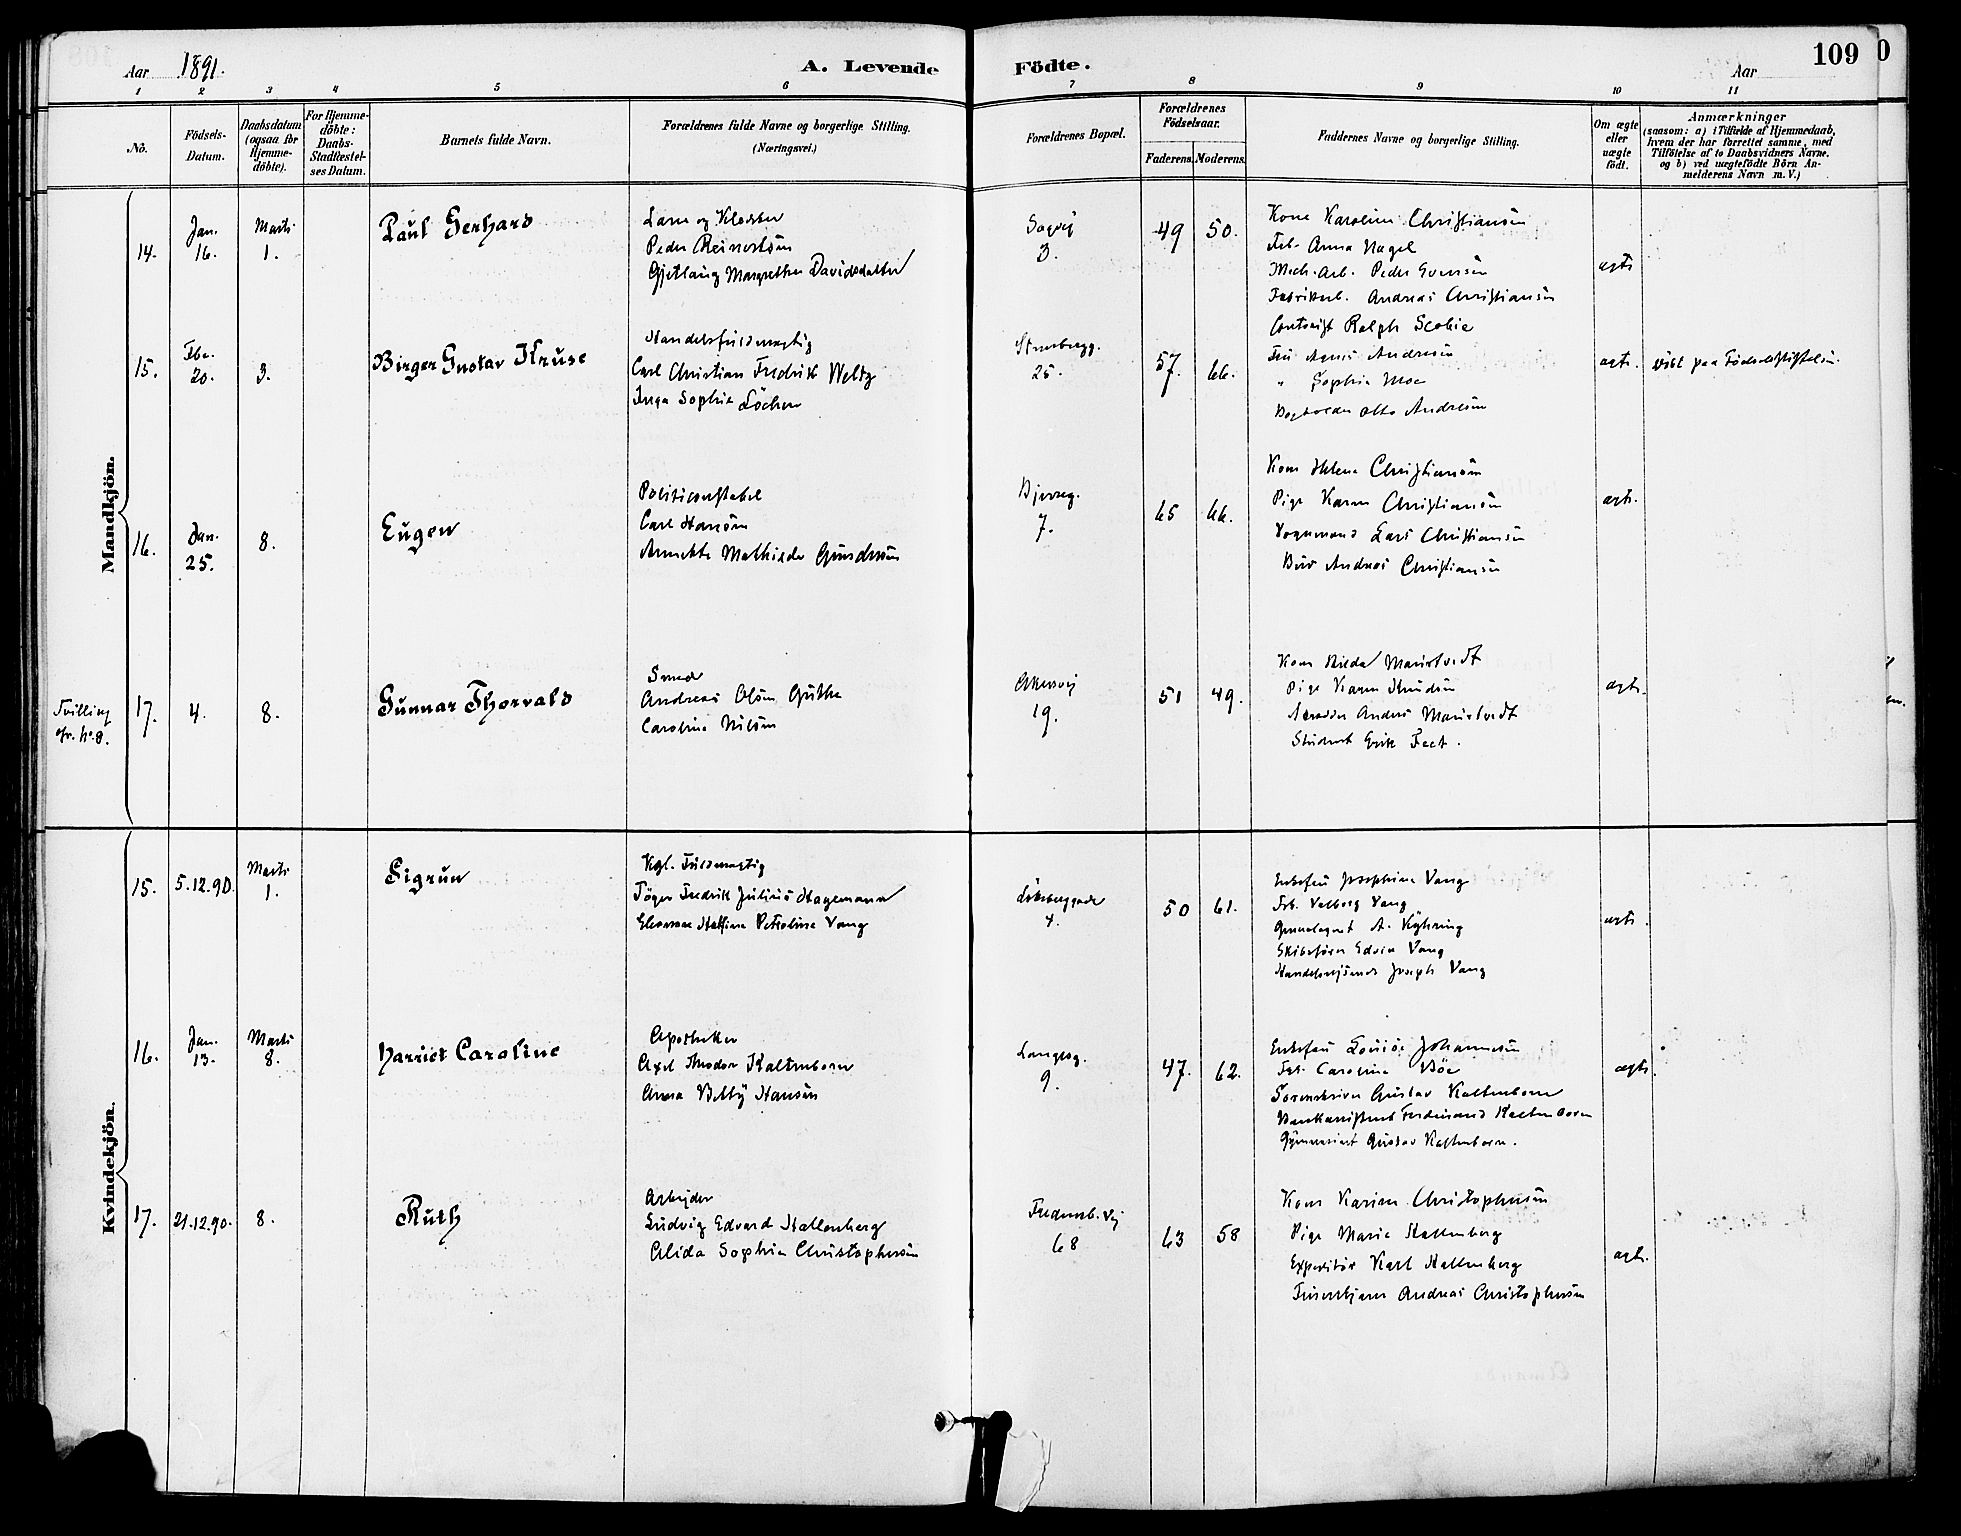 Aar 1891.
A. Levende Födte.
109
Aar
1 2 3 4 5 6 7 8 9 10 11
No.
Födsels-Datum.
Daabsdatum (ogsaa for Hjemme-döbte).
For Hjemme-döbte: Daabs-Stadfæstel-ses Datum.
Barnets fulde Navn.
Forældrenes fulde Navne og borgerlige Stilling.
(Næringsvei.)
Forældrenes Bopæl.
Forældrenes Födselsaar.
Faderens. Moderens.
Faddernes Navne og borgerlige Stilling.
Om ægte eller uægte födt.
Anmærkninger
(saasom: a) i Tilfælde af Hjemmedaab,
hvem der har forrettet samme, med
Tilföielse af to Daabsvidners Navne.
og b) ved uægtefödte Börn An-
melderens Navn m. V.)
Mandkjön.
14.
Jan.
16.
Marts
1.
Paul Gerhard
Peder Reinertsen
Margrethe Davidsdatter
Sagvej
3.
49
50.
Kone Karoline Christiansen
Frk. Anna Nagel
Mech. Arb. Peder Evensen
Fabrikarb. Andreas Christiansen
ægte
15.
20.
3.
Birger Gustav Kruse
Handelsfuldmægtig
Carl Christian Fredrik Weltz
Inga Sophie Löchen
25.
57.
66.
Contorist Ralph Scobie
Fru Agnes Andresen
" Sophie Moe
Bogholder Otto Andresen
ægte.
Döbt paa Fødselsstiftelsen.
16.
Jan.
25.
8.
Eugen
Politiconstabel
Carl Hansen
Annette Mathilde Gundersen
7.
65
66.
Kone Helene Christiansen
Pige Karen Christiansen
Vognmand Lars Christiansen
Andreas Christiansen
ægte.
Tvilling
cfr. No. 8.
17.
4.
8.
Gunnar Thorvald
Smed
Andreas Olsen Guthe
Caroline Nilsen
Akersvej
19.
51
49.
Kone Hilda Maristvedt
Pige Karen Knudsen
Anders Maristvedt
Student Erik Feet.
ægte.
Kvindekjön.
15.
5.12.90.
Marts
1.
Sigrun
Kgl. Fuldmægtig
Töger Fredrik Julius Hagemann
Petroline Vang
4.
50
61.
Enkefru Josephine Vang
Frk. Valborg Vang
Skibsfører Edvin Vang
Handelsrejsende Joseph Vang
ægte.
16.
Jan.
13.
Marts
8.
Harriet Caroline
Apotheker
Axel Theodor Kaltenborn
Anna Betty Hansen
Langesg.
9.
47.
62.
Enkefru Louise Johannesen
Frk. Caroline Böe
Sorenskriver Gustav Kaltenborn
Bankassistent Ferdinand Kaltenborn
Gymnasiast Gustav Kaltenborn.
ægte.
17.
21.12.90.
8.
Ruth
Arbejder
Ludvig Edvard Hallenberg
Alida Sophie Christophersen
Fredensb. Vej
68
63
58
Kone Karine Christophersen
Pige Marie Hallenberg
Expeditör Karl Hallenberg
Andreas Christophersen
ægte.